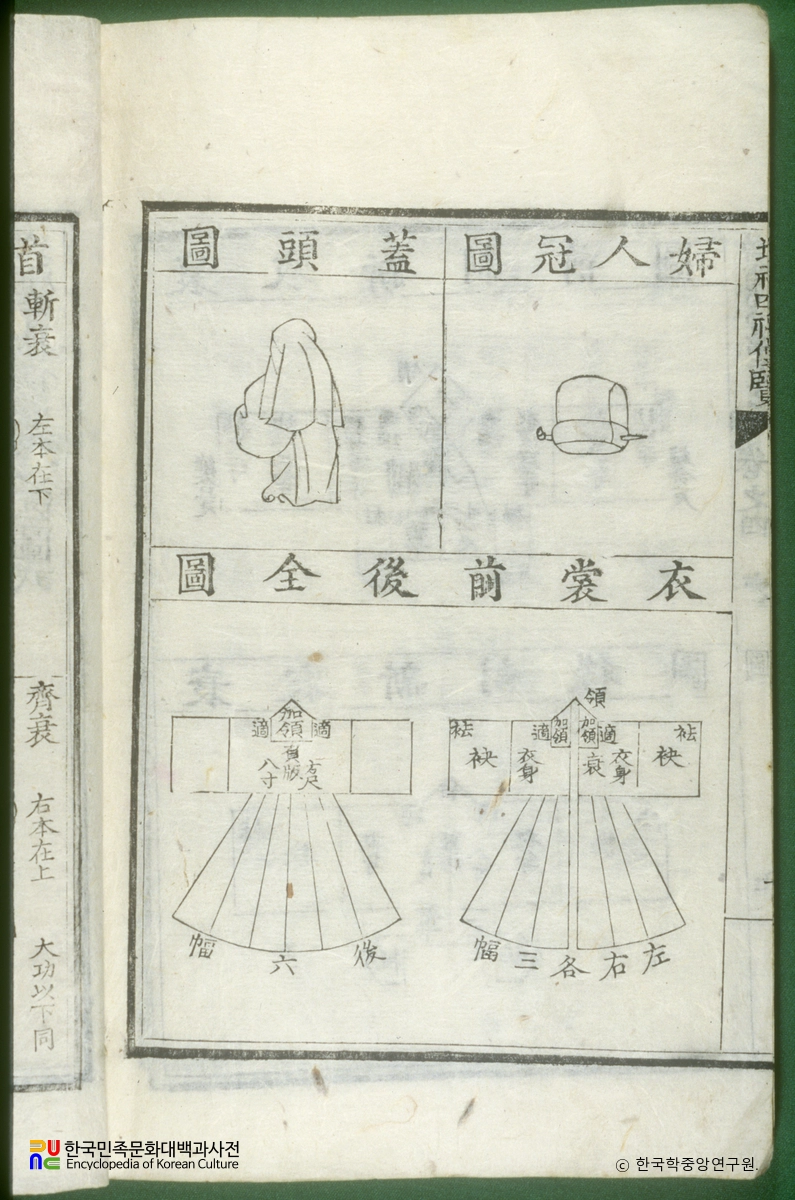 增補四禮便覽
婦人冠圖
蓋頭圖
衣裳前後全圖
領
加領
加領
適
適
袪
袪
袂
袂
衣身
衣身
衰
左右各三幅
加領
適
適
負版
方尺
八寸
後六幅
首
斬衰
左本在下
齊衰
右本在上
大功以下同
한국민족문화대백과사전
Encyclopedia of Korean Culture
© 한국학중앙연구원.